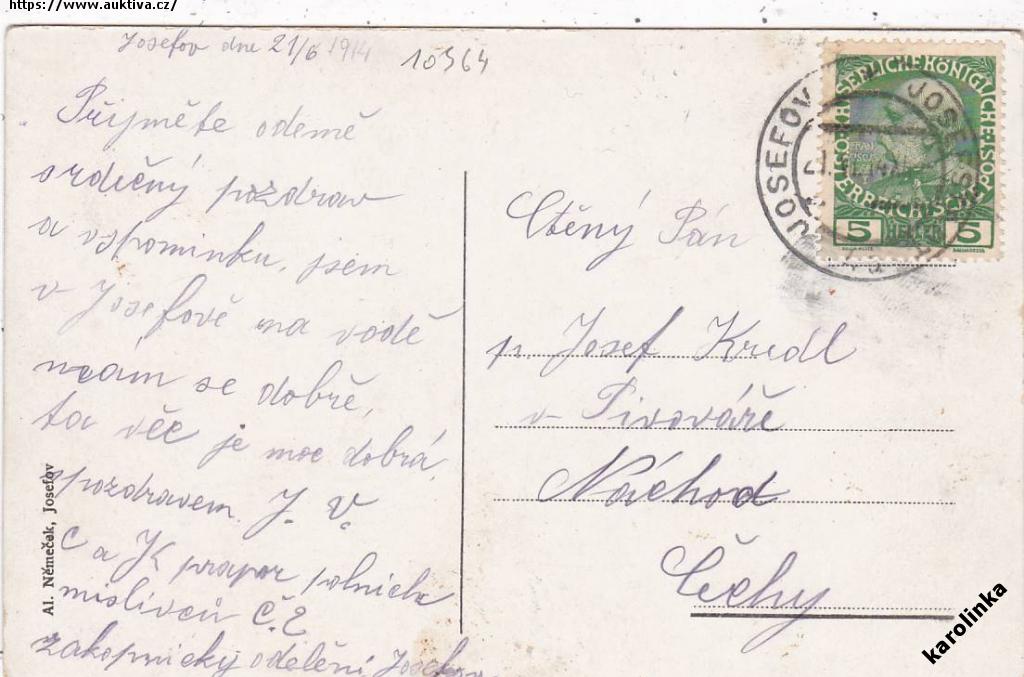 https://www.auktiva.cz/
Josefov dne 21/6 1914
10364
Přijměte odemě
srdečný pozdrav
a vspomínku, jsem
v Josefově na vodě
mám se dobře,
ta věc je moc dobrá,
spozdravem J. V.
C a K prapor polních
mislivců Č. 2
zákopnický oddělení Josefov
Al. Němeček, Josefov
JOSEFOV
JOSEFSTADT
KAISERLICHE KÖNIGLICHE POST
ÖSTERREICHISCHE
5 HELLER 5
Ctěný Pán
p. Josef Kredl
v Pivováře
Náchod
Čechy
karolinka